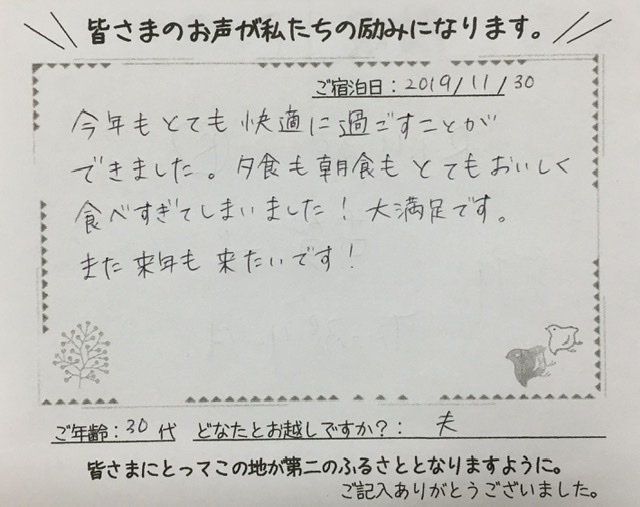 皆さまのお声が私たちの励みになります。
ご宿泊日：2019/11/30
今年もとても快適に過ごすことが
できました。夕食も朝食もとてもおいしく
食べすぎてしまいました！大満足です。
また来年も来たいです！
ご年齢：30代 どなたとお越しですか？：夫
皆さまにとってこの地が第二のふるさととなりますように。
ご記入ありがとうございました。